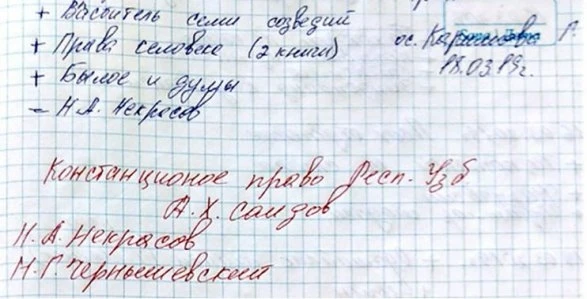 + Васоитель семи созведий
+ Права человека (2 книги)
+ Былое и думы
- Н.А. Некрасов
ос. Каримова Г
18.03.19г.
Констанционое право Респ. Узб
А.Х. Саидов
Н.А. Некрасов
Н.Г Чернышевский